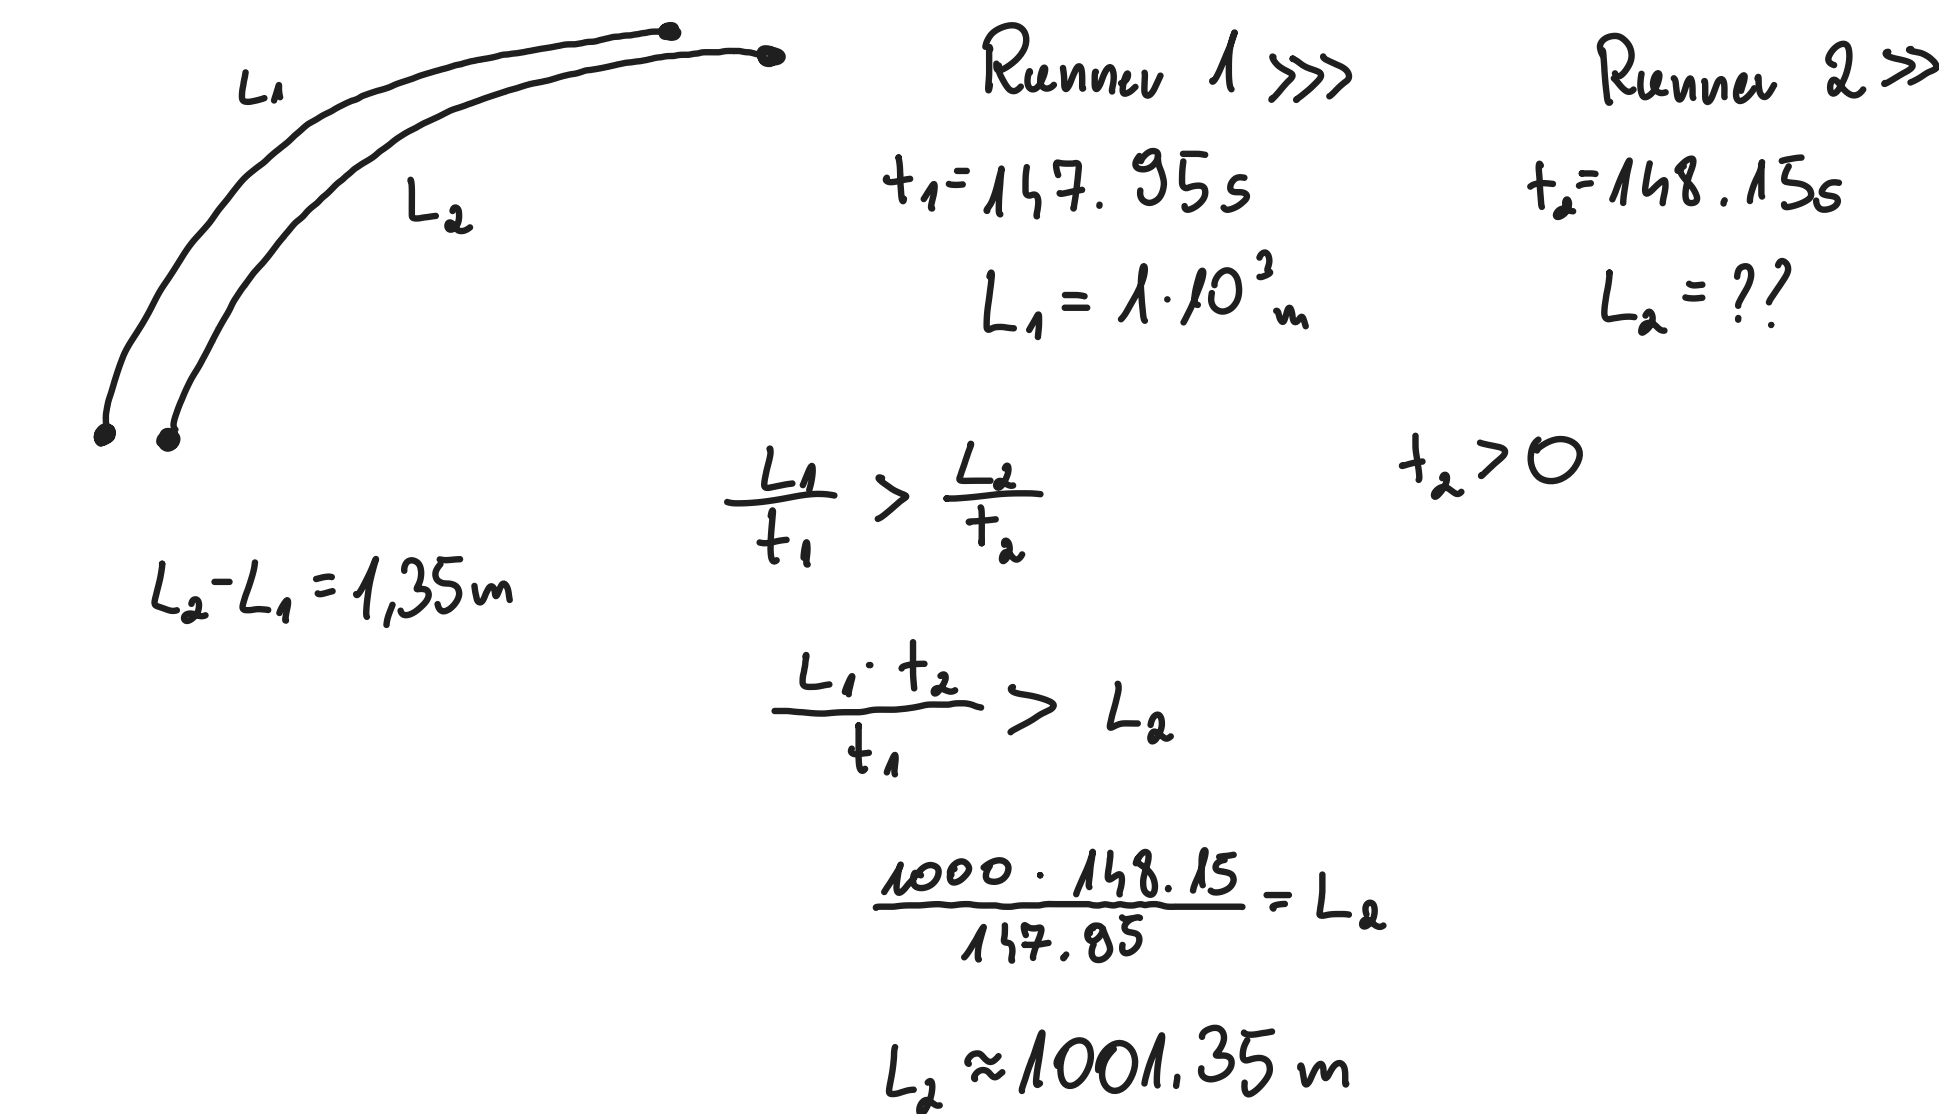 L₁
L₂
Runner 1 >>>
t₁ = 147.95s
L₁ = 1·10³ m
Runner 2 >>
t₂ = 148.15s
L₂ = ??
L₁/t₁ > L₂/t₂
t₂ > 0
L₂ - L₁ = 1,35m
L₁ · t₂ / t₁ > L₂
1000 · 148.15 / 147.95 = L₂
L₂ ≈ 1001.35 m